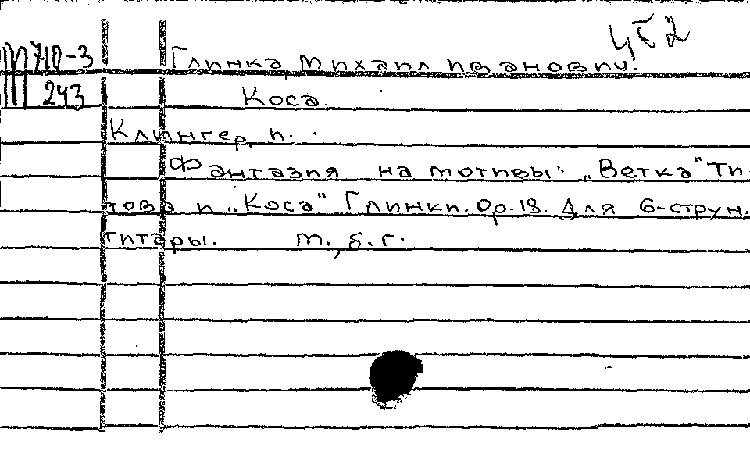 452
М 710-3
Глинка, Михаил Иванович.
243
Коса.
Клингер, И.
Фантазия на мотивы: „Ветка" Ти-
това и „Коса" Глинки. Op. 18. Для 6-струн.
гитары. М., б. г.